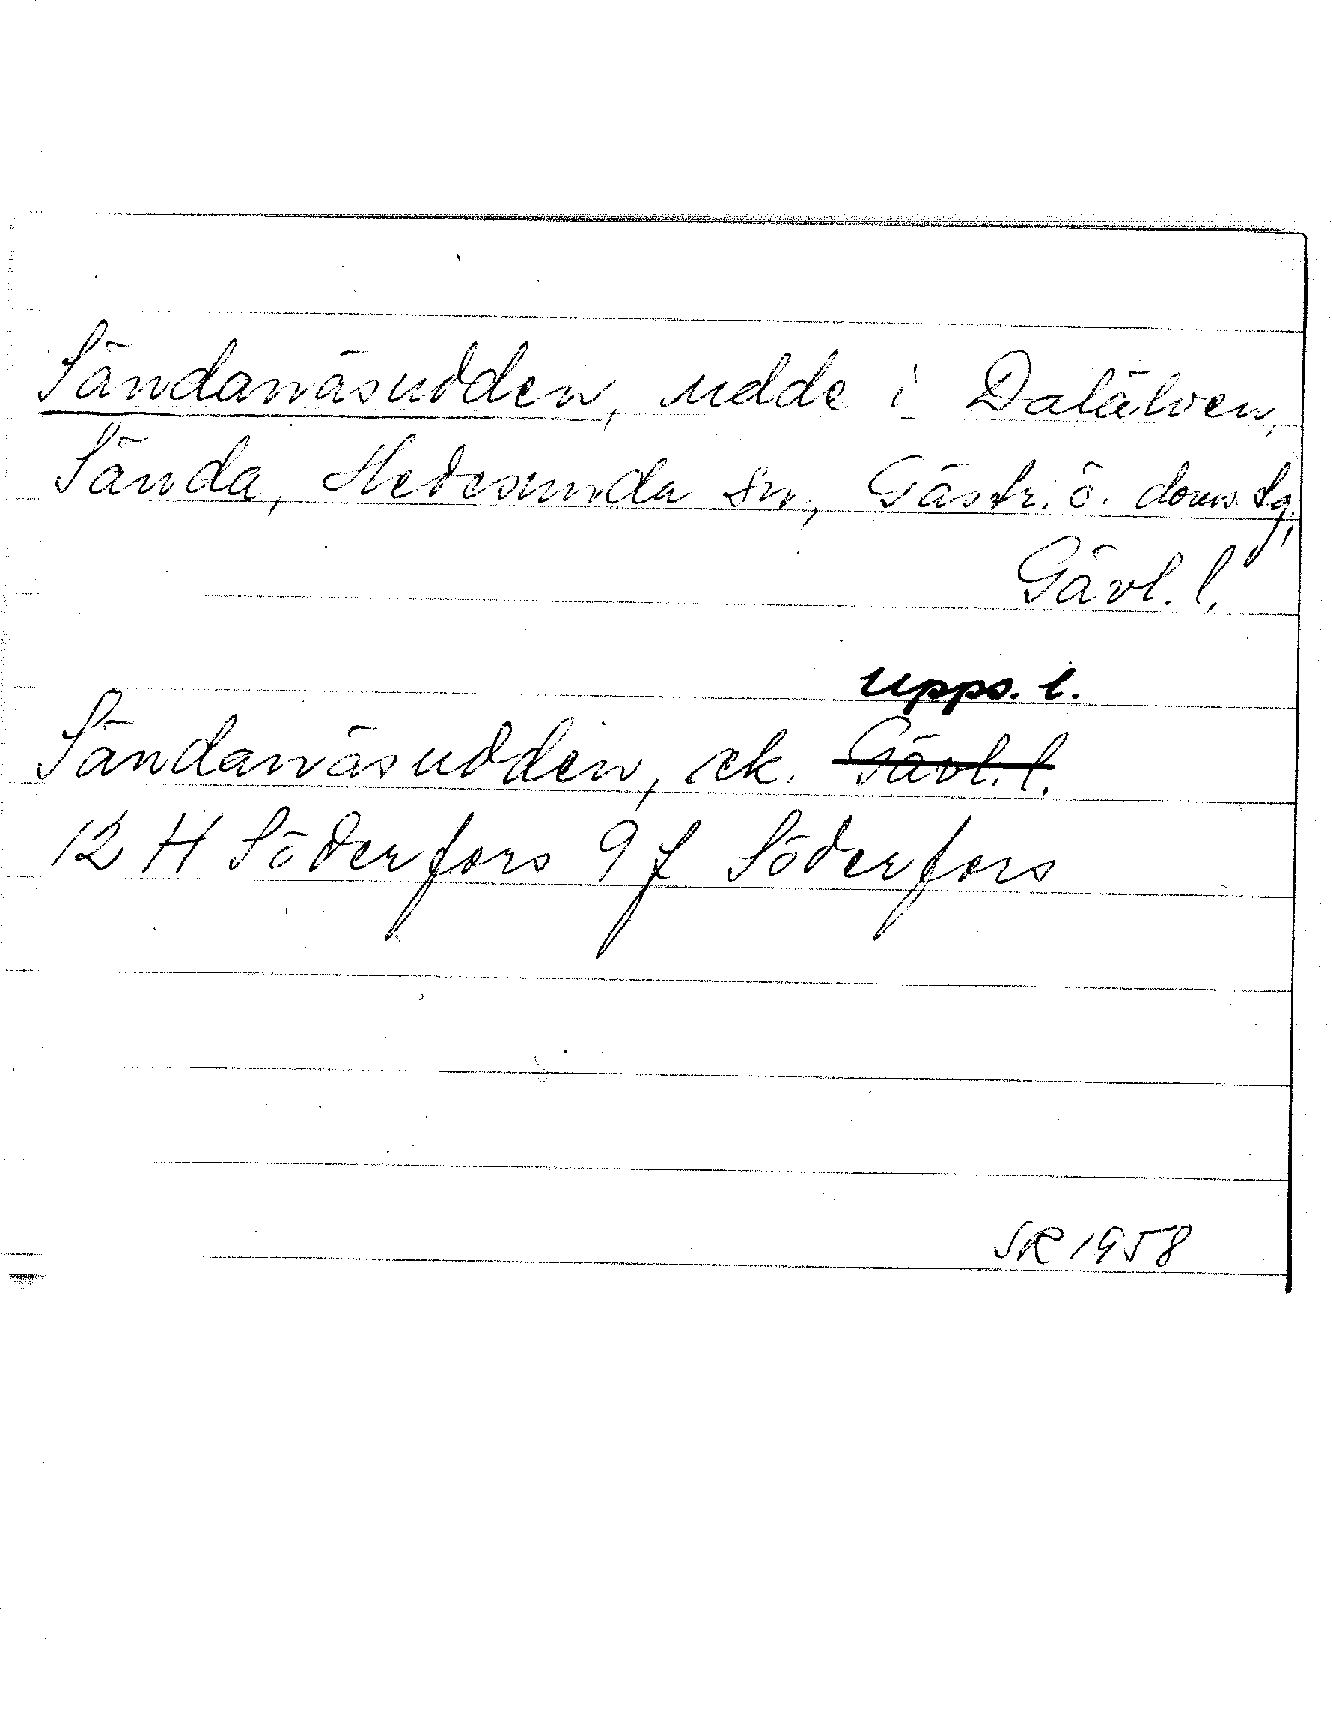 Sändanäsudden, udde i Dalälven,
Sända, Hedesunda sn, Gästr. ö. doms.tg,
Gävl. l.
Upps. l.
Sändanäsudden, ek. Gävl. l.
12 H Söderfors 9 f Söderfors
SR 1958